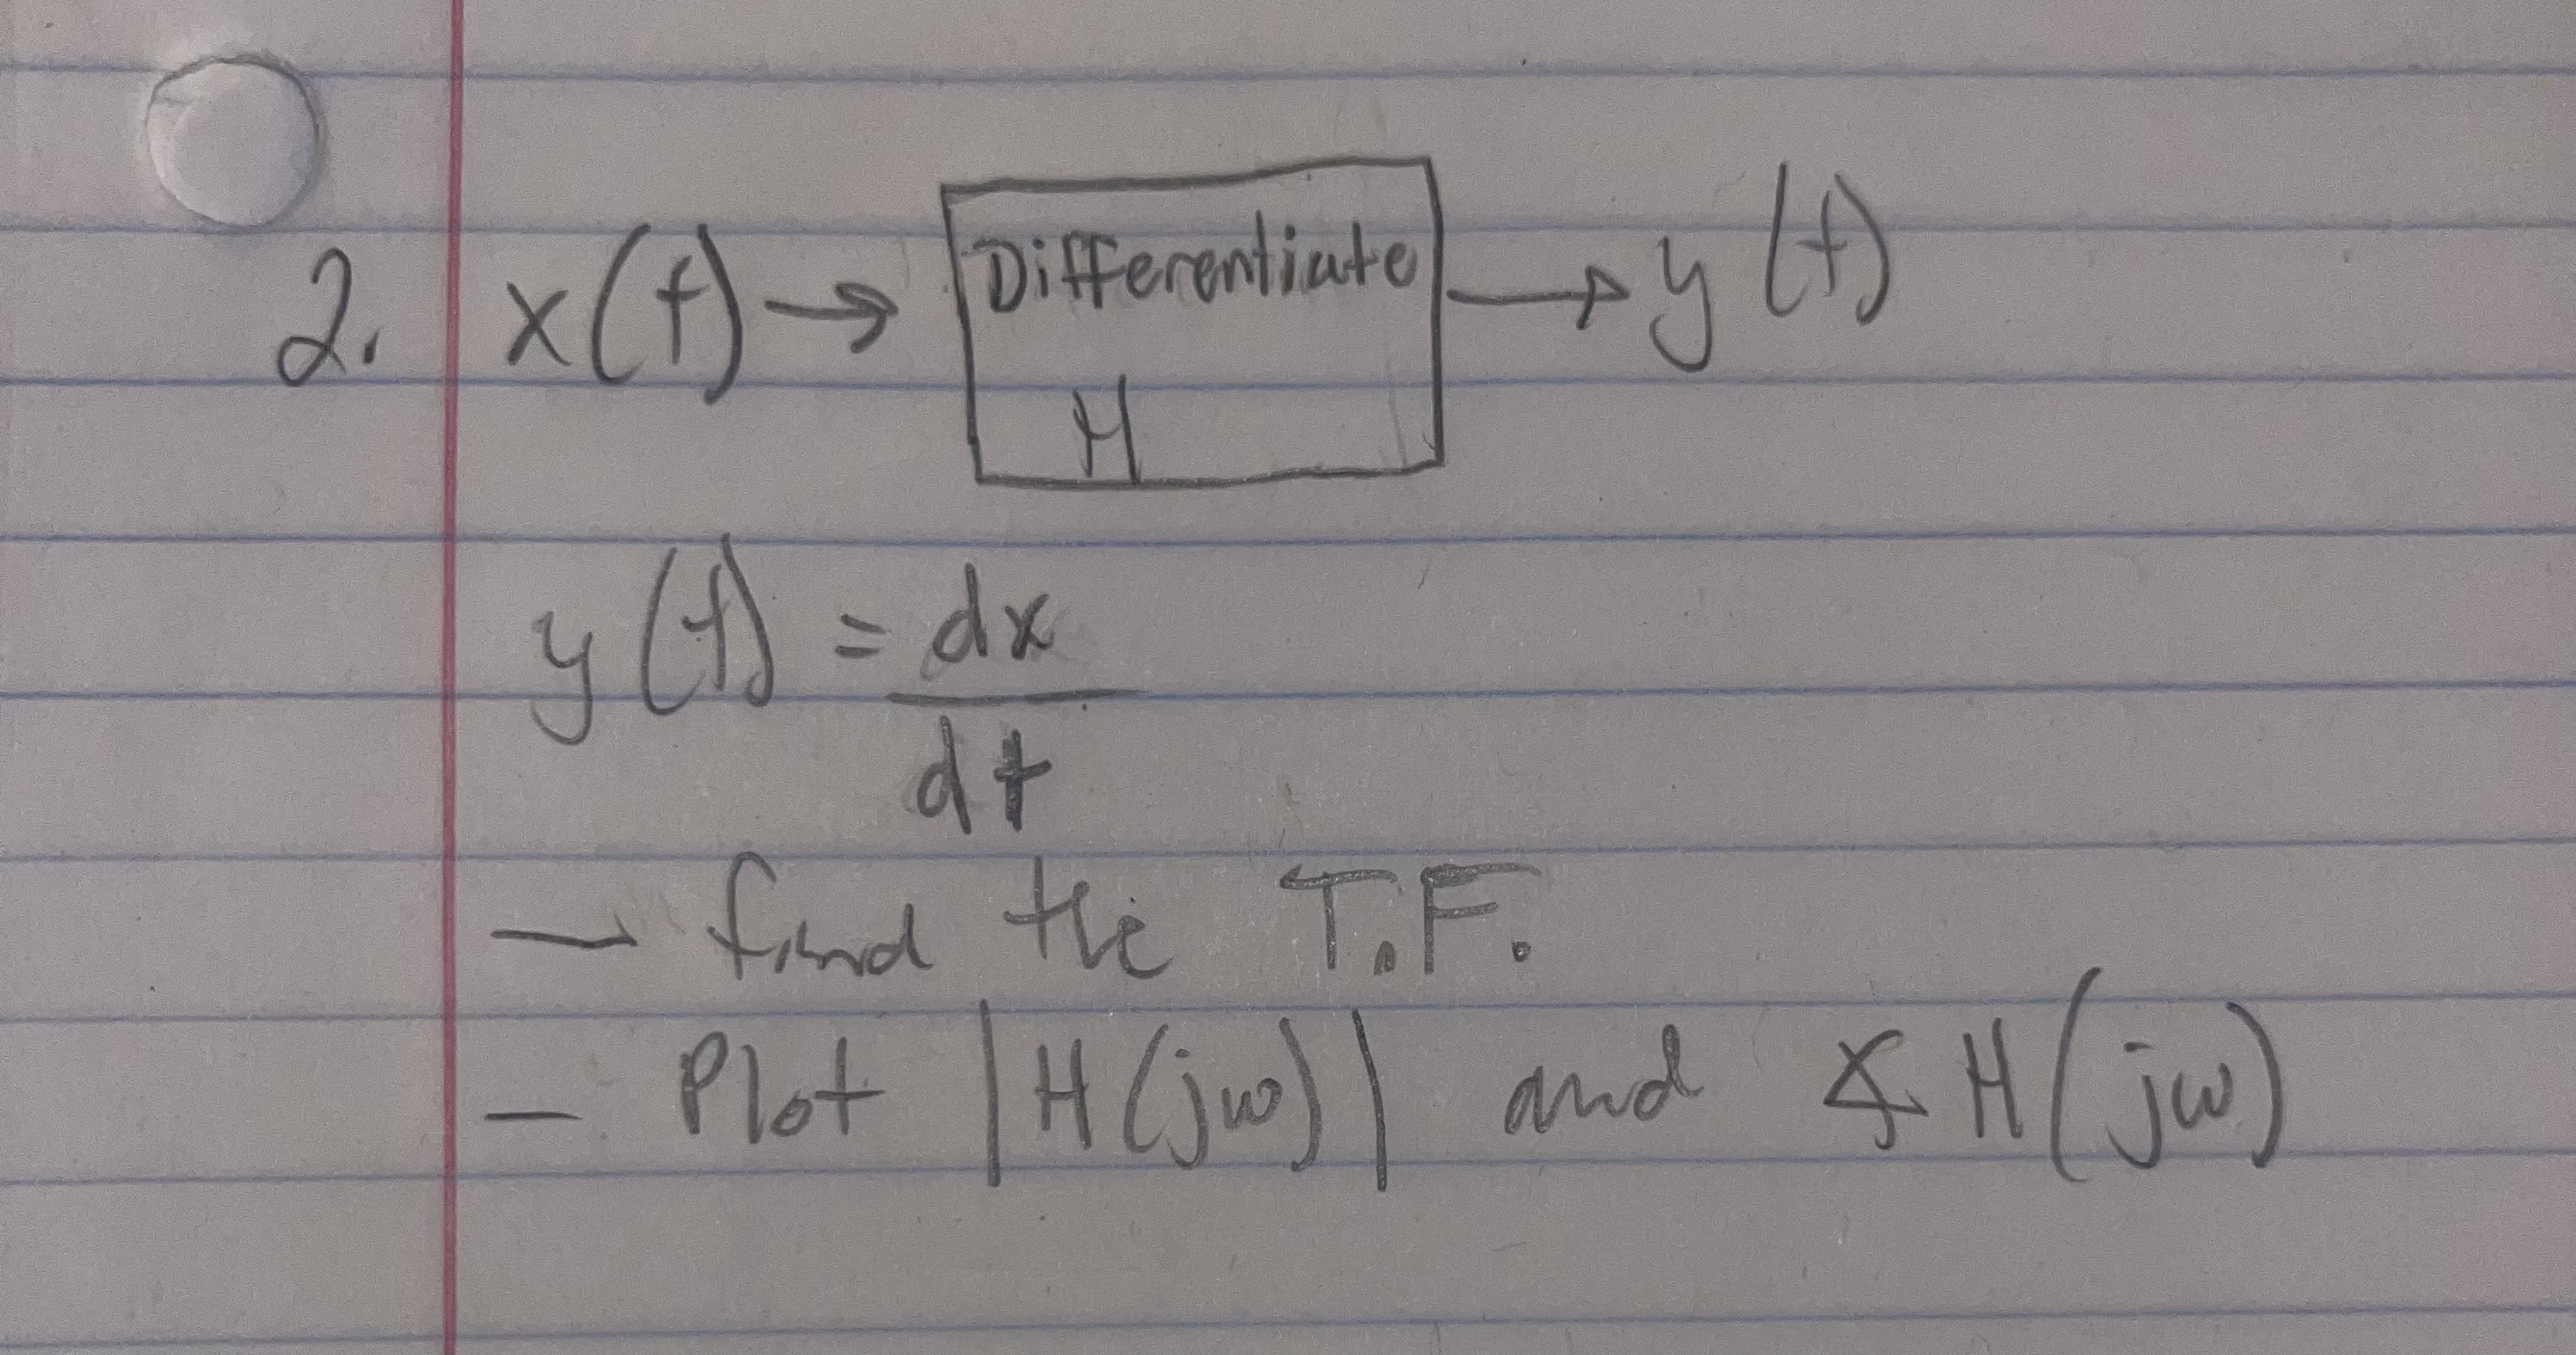 2. x(t) → Differentiate → y(t)
H
y(t) = dx
dt
→ find the T.F.
— Plot |H(jω)| and ∡ H(jω)